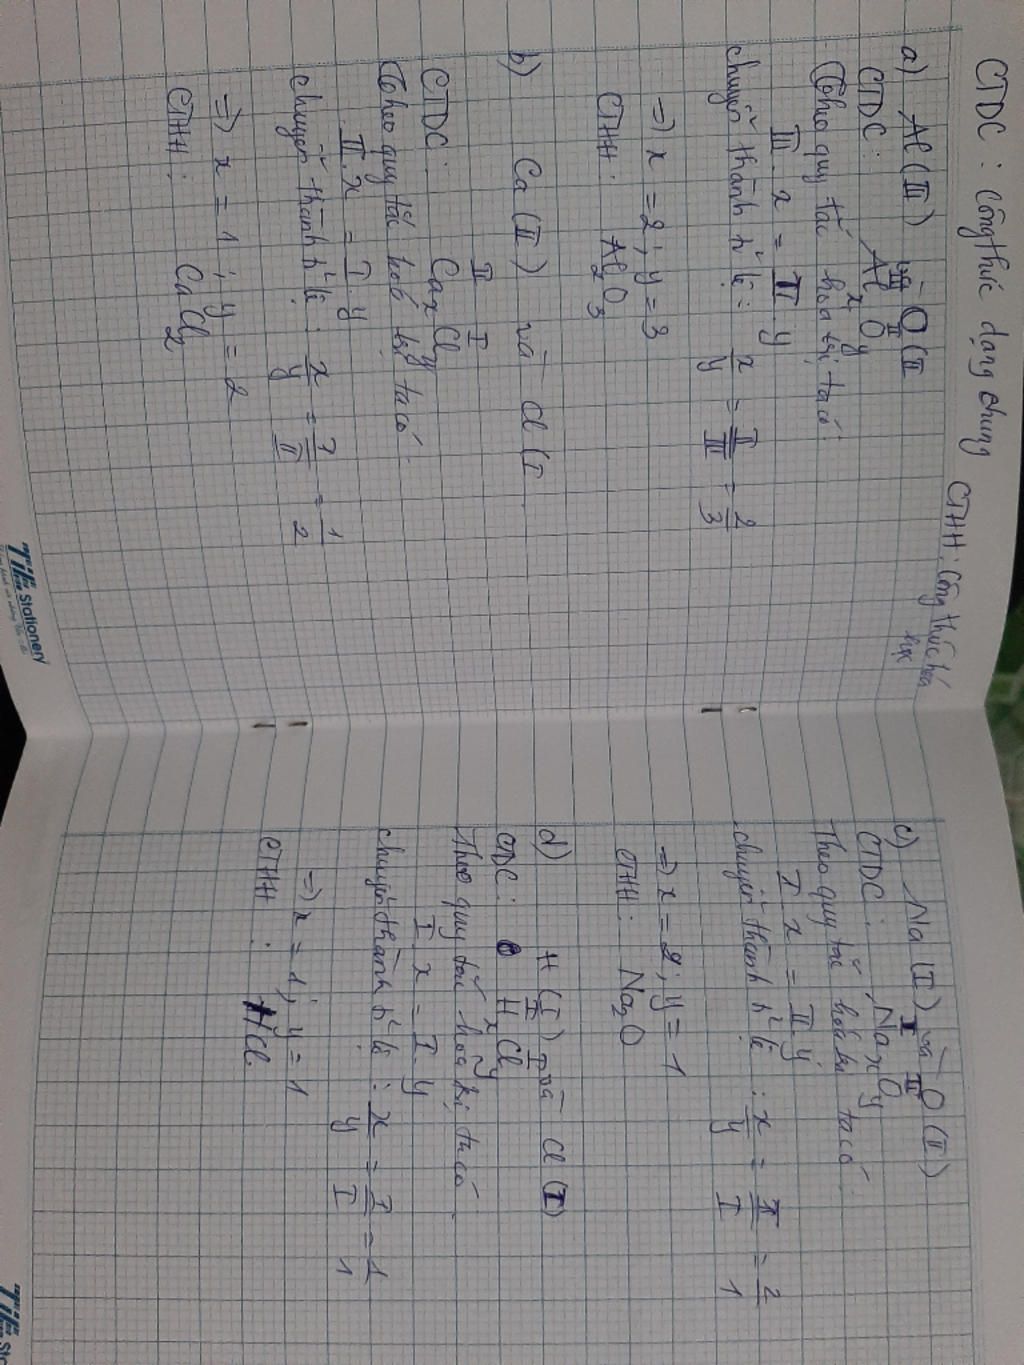 CTDC : Công thức dạng chung
CTHH : Công thức hóa
học
a) Al (III) và O (II
III II
CTDC : AlxOy
Theo quy tắc hóa trị, ta có:
III . x = II . y
chuyển thành tỉ lệ : x/y = II/III = 2/3
=) x = 2 ; y = 3
CTHH : Al2O3
b) Ca (II) và Cl (I
II I
CTDC : CaxCly
Theo quy tắc hoá trị, ta có:
II . x = I . y
chuyển thành tỉ lệ : x/y = I/II = 1/2
=) x = 1 ; y = 2
CTHH : CaCl2
TiE Stationery
c) Na (I) và O (II)
I II
CTDC : NaxOy
Theo quy tắc hoá trị ta có
I x = II y
chuyển thành tỉ lệ : x/y = II/I = 2/1
=) x = 2 ; y = 1
CTHH : Na2O
d) H (I) và Cl (I)
I I
CTDC : HxCly
Theo quy tắc hoá trị, ta có
I x = I y
chuyển thành tỉ lệ : x/y = I/I = 1/1
=) x = 1 ; y = 1
CTHH : HCl